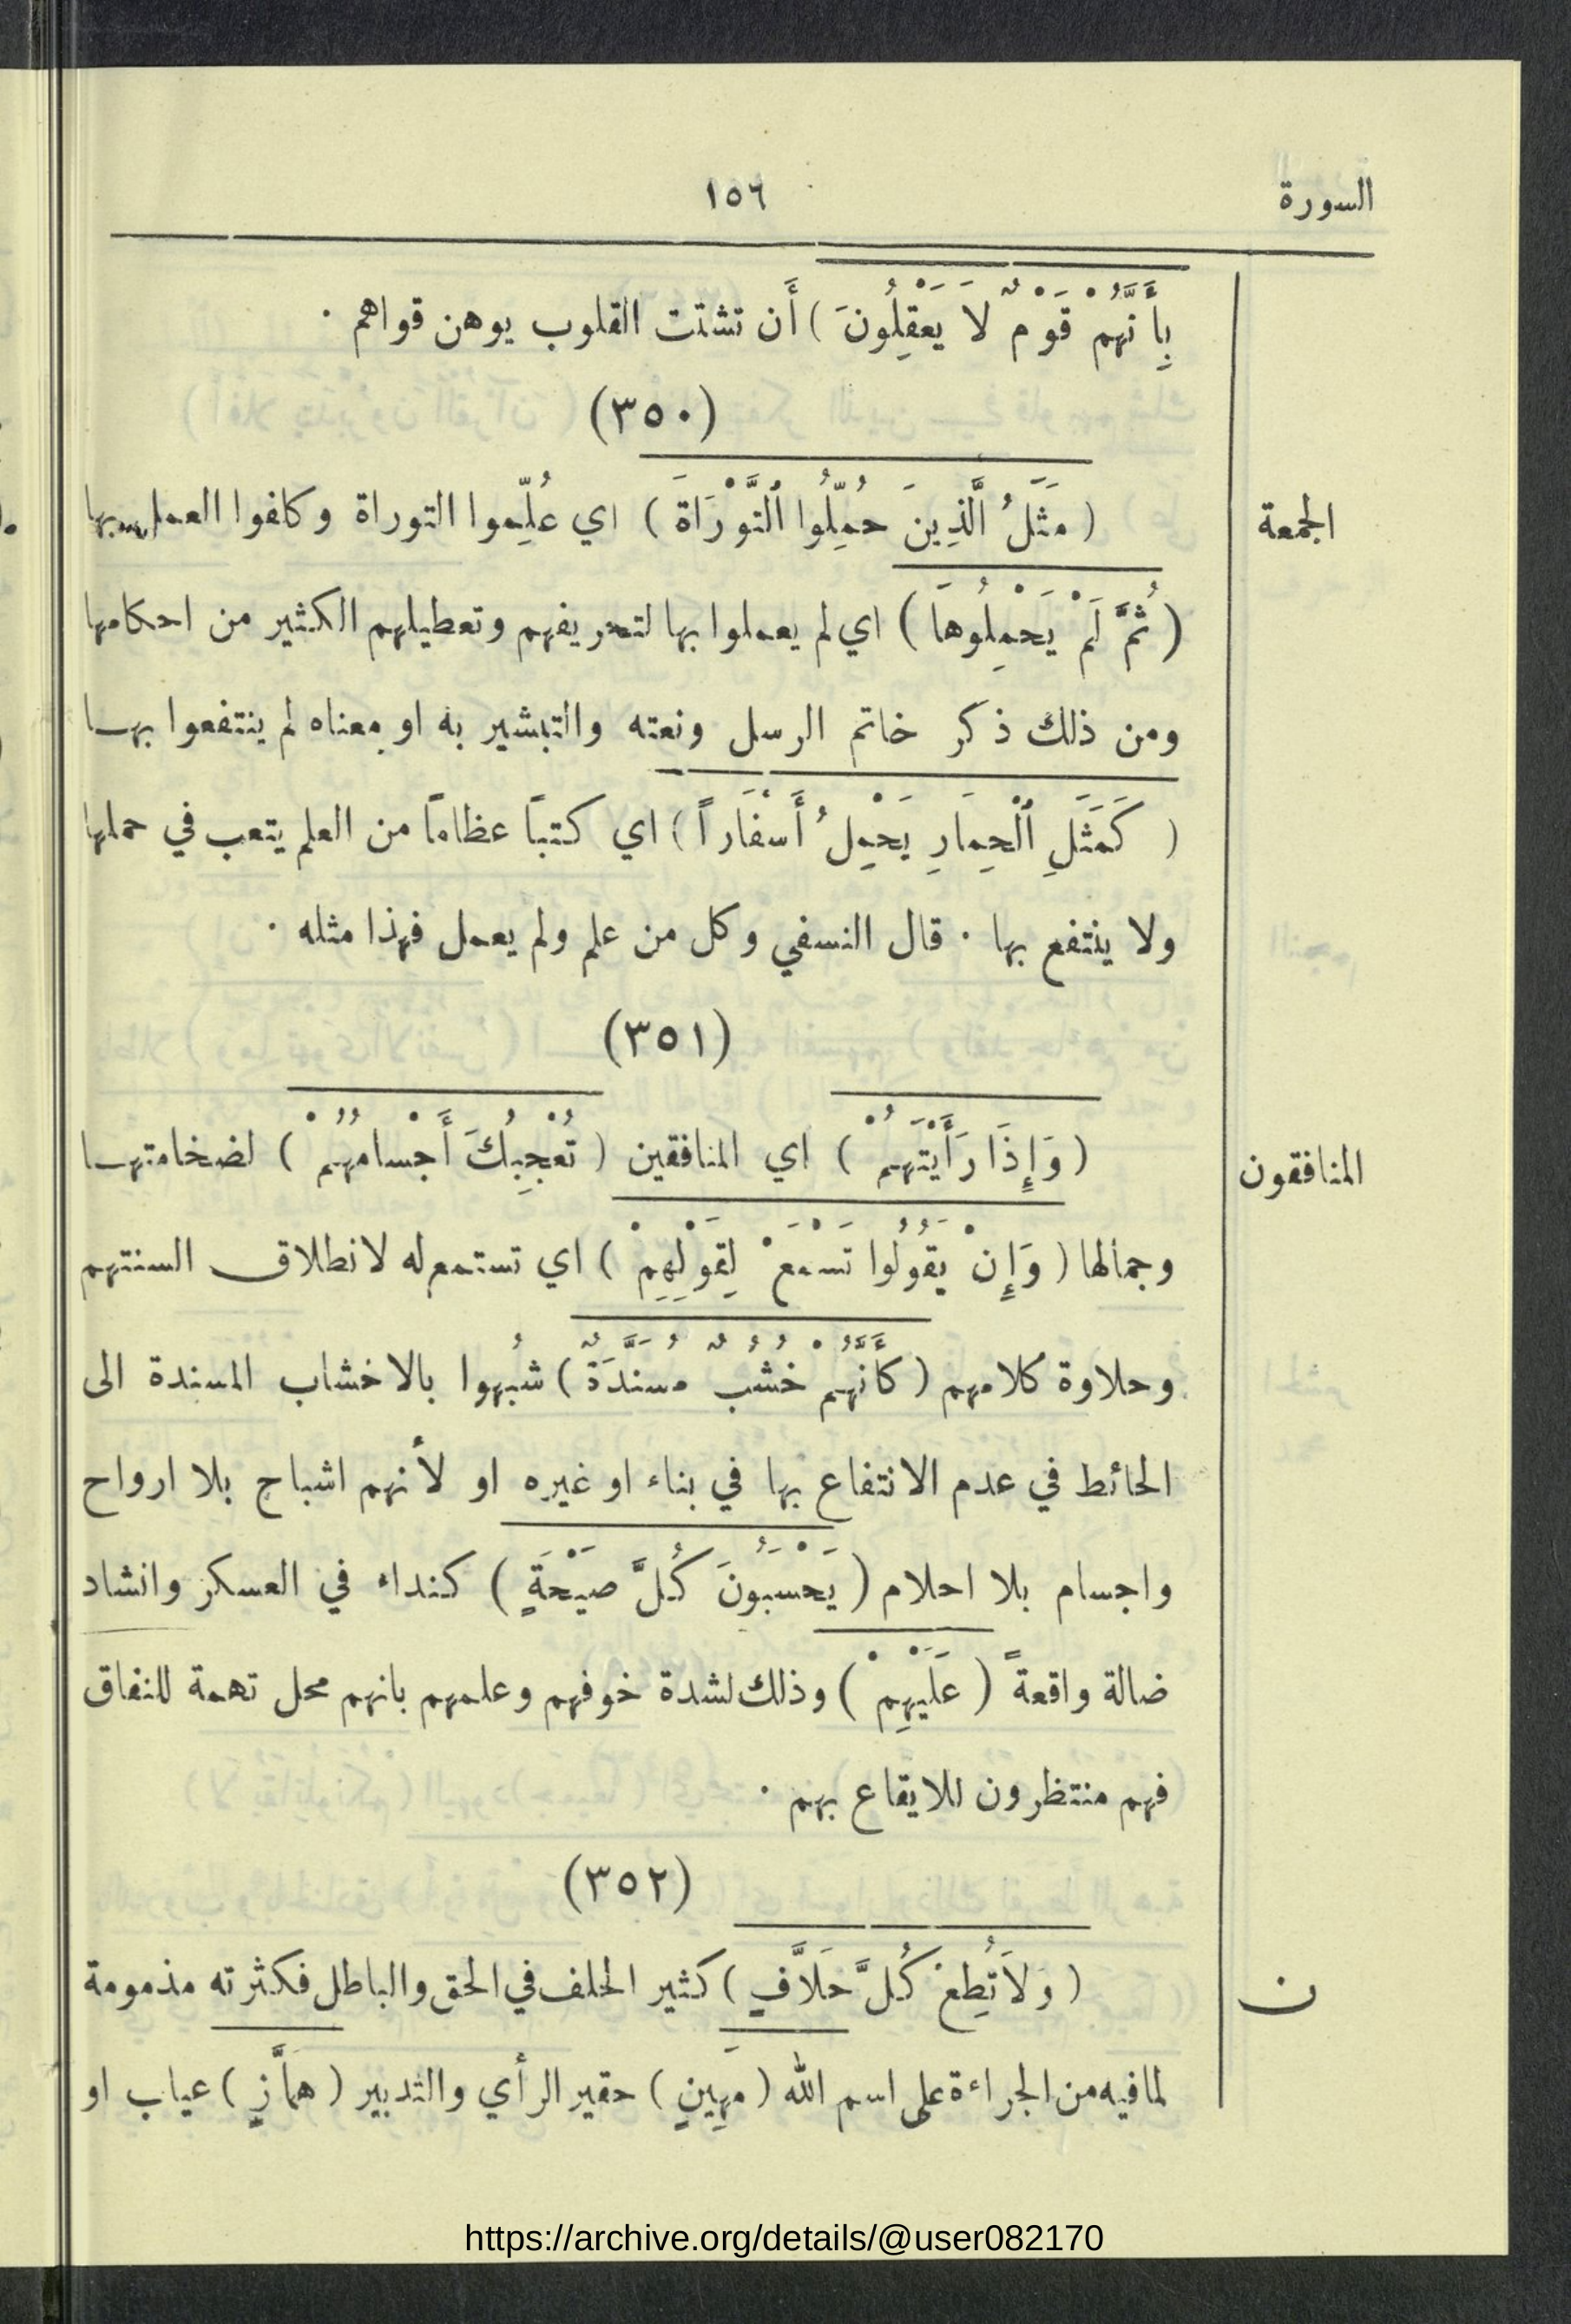 السورة
١٥٦
بِأَنَّهُمْ قَوْمٌ لَا يَعْقِلُونَ ) أَن تشتت القلوب يوهن قواهم .
(٣٥٠)
الجمعة
( مَثَلُ الَّذِينَ حُمِّلُوا ٱلتَّوْرَاةَ ) اي عُلِّموا التوراة وكلفوا العمل بها
( ثُمَّ لَمْ يَحْمِلُوهَا ) اي لم يعملوا بها لتحريفهم وتعطيلهم الكثير من احكامها
ومن ذلك ذكر خاتم الرسل ونعته والتبشير به او معناه لم ينتفعوا بهـا
( كَمَثَلِ ٱلْحِمَارِ يَحْمِلُ أَسْفَاراً ) اي كتباً عظاماً من العلم يتعب في حملها
ولا ينتفع بها . قال النسفي وكل من علم ولم يعمل فهذا مثله .
(٣٥١)
المنافقون
( وَإِذَا رَأَيْتَهُمْ ) اي المنافقين ( تُعْجِبُكَ أَجْسامُهُمْ ) لضخامتهـا
وجمالها ( وَإِنْ يَقُولُوا تَسْمَعْ لِقَوْلِهِمْ ) اي تستمع له لانطلاق السنتهم
وحلاوة كلامهم ( كَأَنَّهُمْ خُشُبٌ مُسَنَّدَةٌ ) شُبهوا بالاخشاب المسندة الى
الحائط في عدم الانتفاع بها في بناء او غيره او لأنهم اشباح بلا ارواح
واجسام بلا احلام ( يَحْسَبُونَ كُلَّ صَيْحَةٍ ) كنداء في العسكر وانشاد
ضالة واقعةً ( عَلَيْهِمْ ) وذلك لشدة خوفهم وعلمهم بانهم محل تهمة للنفاق
فهم منتظرون للايقاع بهم .
(٣٥٢)
ن
( وَلَا تُطِعْ كُلَّ حَلَاَّفٍ ) كثير الحلف في الحق والباطل فكثرته مذمومة
لما فيه من الجراءة على اسم الله ( مَهِينٍ ) حقير الرأي والتدبير ( همَّازٍ ) عياب او
https://archive.org/details/@user082170